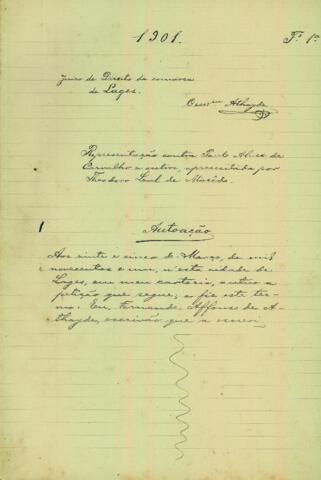 1901.
Fº 1º
Juizo de Direito da comarca
de Lages.
Escrivão Athayde
Representação contra Alves de
Carvalho e outro, apresentada por
Theodoro Leal de Macêdo.
1
Autoação
Aos vinte e cinco de Março, de mil
novecentos e um, n'esta cidade de
Lages, em meu cartorio, autúo a
petição que segue; e fiz este ter-
mo. Eu, Fernando Affonso de A-
thayde, escrivão que a escrevi